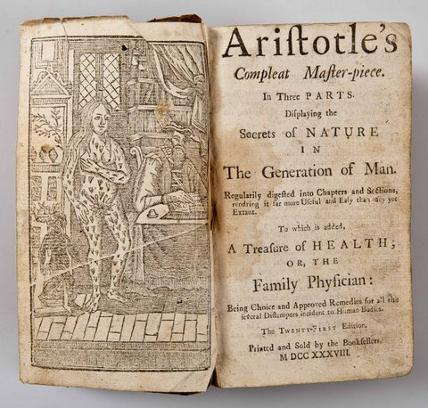 Ariſtotle's
Compleat Maſter-piece.
In Three PARTS.
Diſplaying the
Secrets of NATURE
IN
The Generation of Man.
Regularly digeſted into Chapters and Sections,
rendring it far more Uſeful and Eaſy than any yet
Extant.
To which is added,
A Treaſure of HEALTH;
OR, THE
Family Phyſician:
Being Choice and Approved Remedies for all the
ſeveral Diſtempers incident to Human Bodies.
The TWENTY-FIRST Edition.
Printed and Sold by the Bookſellers.
M DCC XXXVIII.